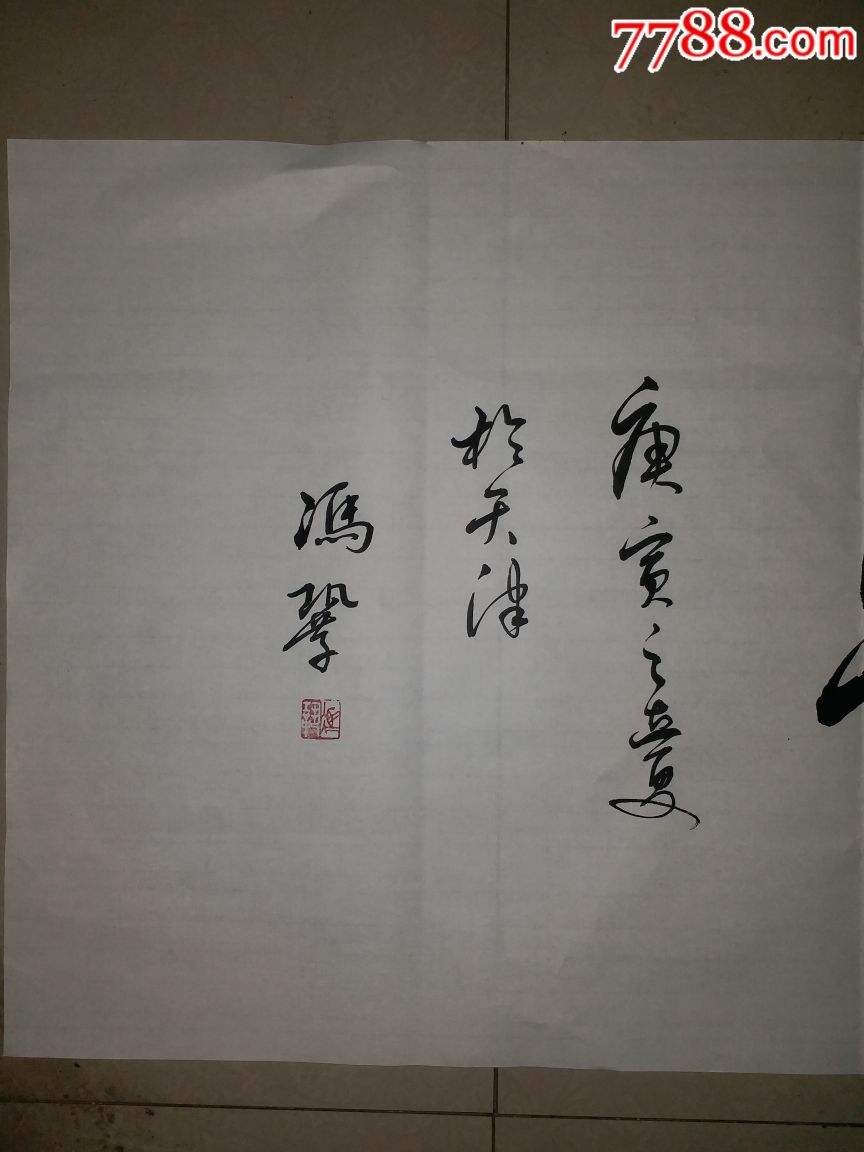 7788.com
庚寅之夏
於天津
馮鞏